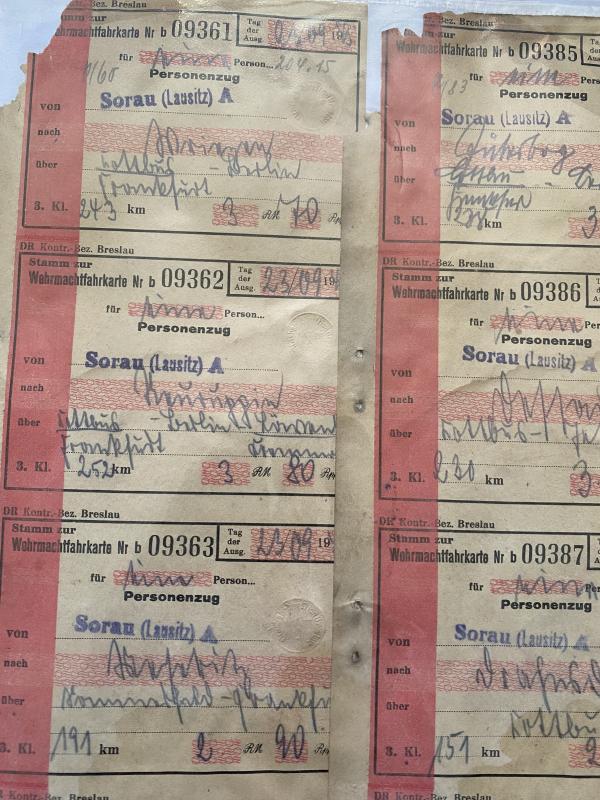 Bez. Breslau
Stamm zur
Wehrmachtfahrkarte Nr b 09361
Tag der Ausg. 23/09 19
für eine Person...
204.15
Personenzug
von Sorau (Lausitz) A
nach Wriezen
über Cottbus - Berlin
Frankfurt
3. Kl. 243 km 3 RM 70 Rpf
DR Kontr.-Bez. Breslau
Stamm zur
Wehrmachtfahrkarte Nr b 09362
Tag der Ausg. 23/09 19
für eine Person...
Personenzug
von Sorau (Lausitz) A
nach Neuruppin
über Cottbus - Berlin
Frankfurt
3. Kl. 252 km 3 RM 80 Rpf
DR Kontr.-Bez. Breslau
Stamm zur
Wehrmachtfahrkarte Nr b 09363
Tag der Ausg. 23/09 19
für eine Person...
Personenzug
von Sorau (Lausitz) A
nach
über Sommerfeld - Frankfu
3. Kl. 191 km 2 RM 90 Rpf
DR Kontr.-Bez. Breslau
Stamm zur
Wehrmachtfahrkarte Nr b 09385
Tag der Ausg.
für eine Pers
Personenzug
von Sorau (Lausitz) A
nach Jüterbog
über Cottbus - Be
Frankfur
3. Kl. km 3
DR Kontr.-Bez. Breslau
Stamm zur
Wehrmachtfahrkarte Nr b 09386
für eine Per
Personenzug
von Sorau (Lausitz) A
nach Dessau
über Cottbus -
3. Kl. 230 km 3
DR Kontr.-Bez. Breslau
Stamm zur
Wehrmachtfahrkarte Nr b 09387
für eine Per
Personenzug
von Sorau (Lausitz) A
nach
über Cottbu
3. Kl. 151 km 2
DR Kontr.-Bez. Breslau